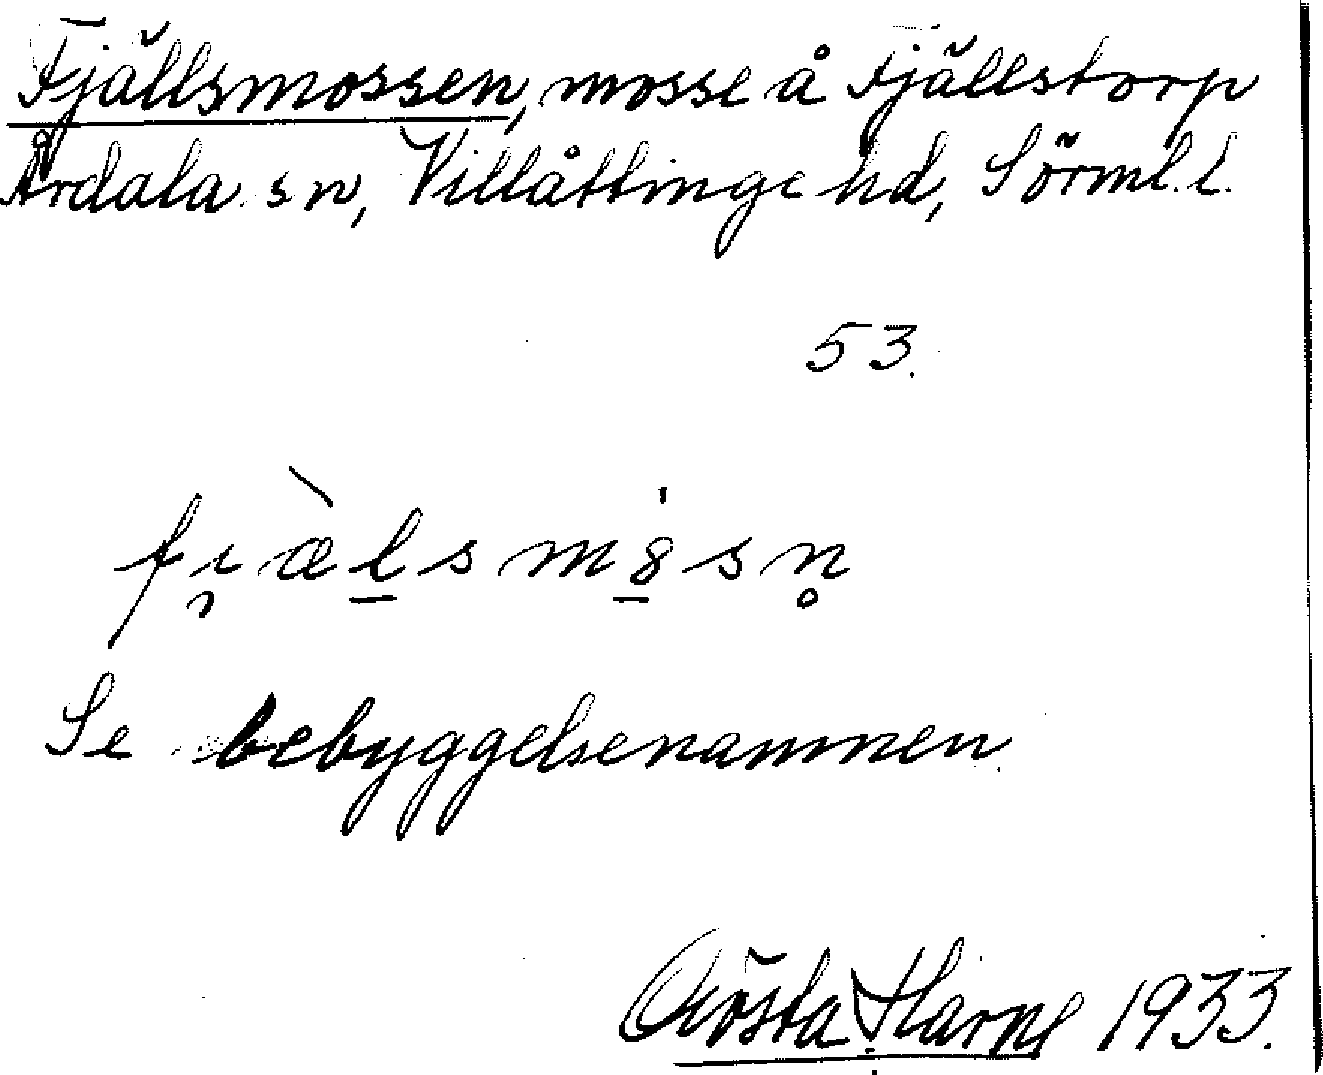 Fjällsmossen, mosse å Fjällstorp
Årdala sn, Villåttinge hd, Sörml. l.
53.
fi̯æ̀l̠sm8̠́sn̥
Se bebyggelsenamnen.
Gösta Harne 1933.